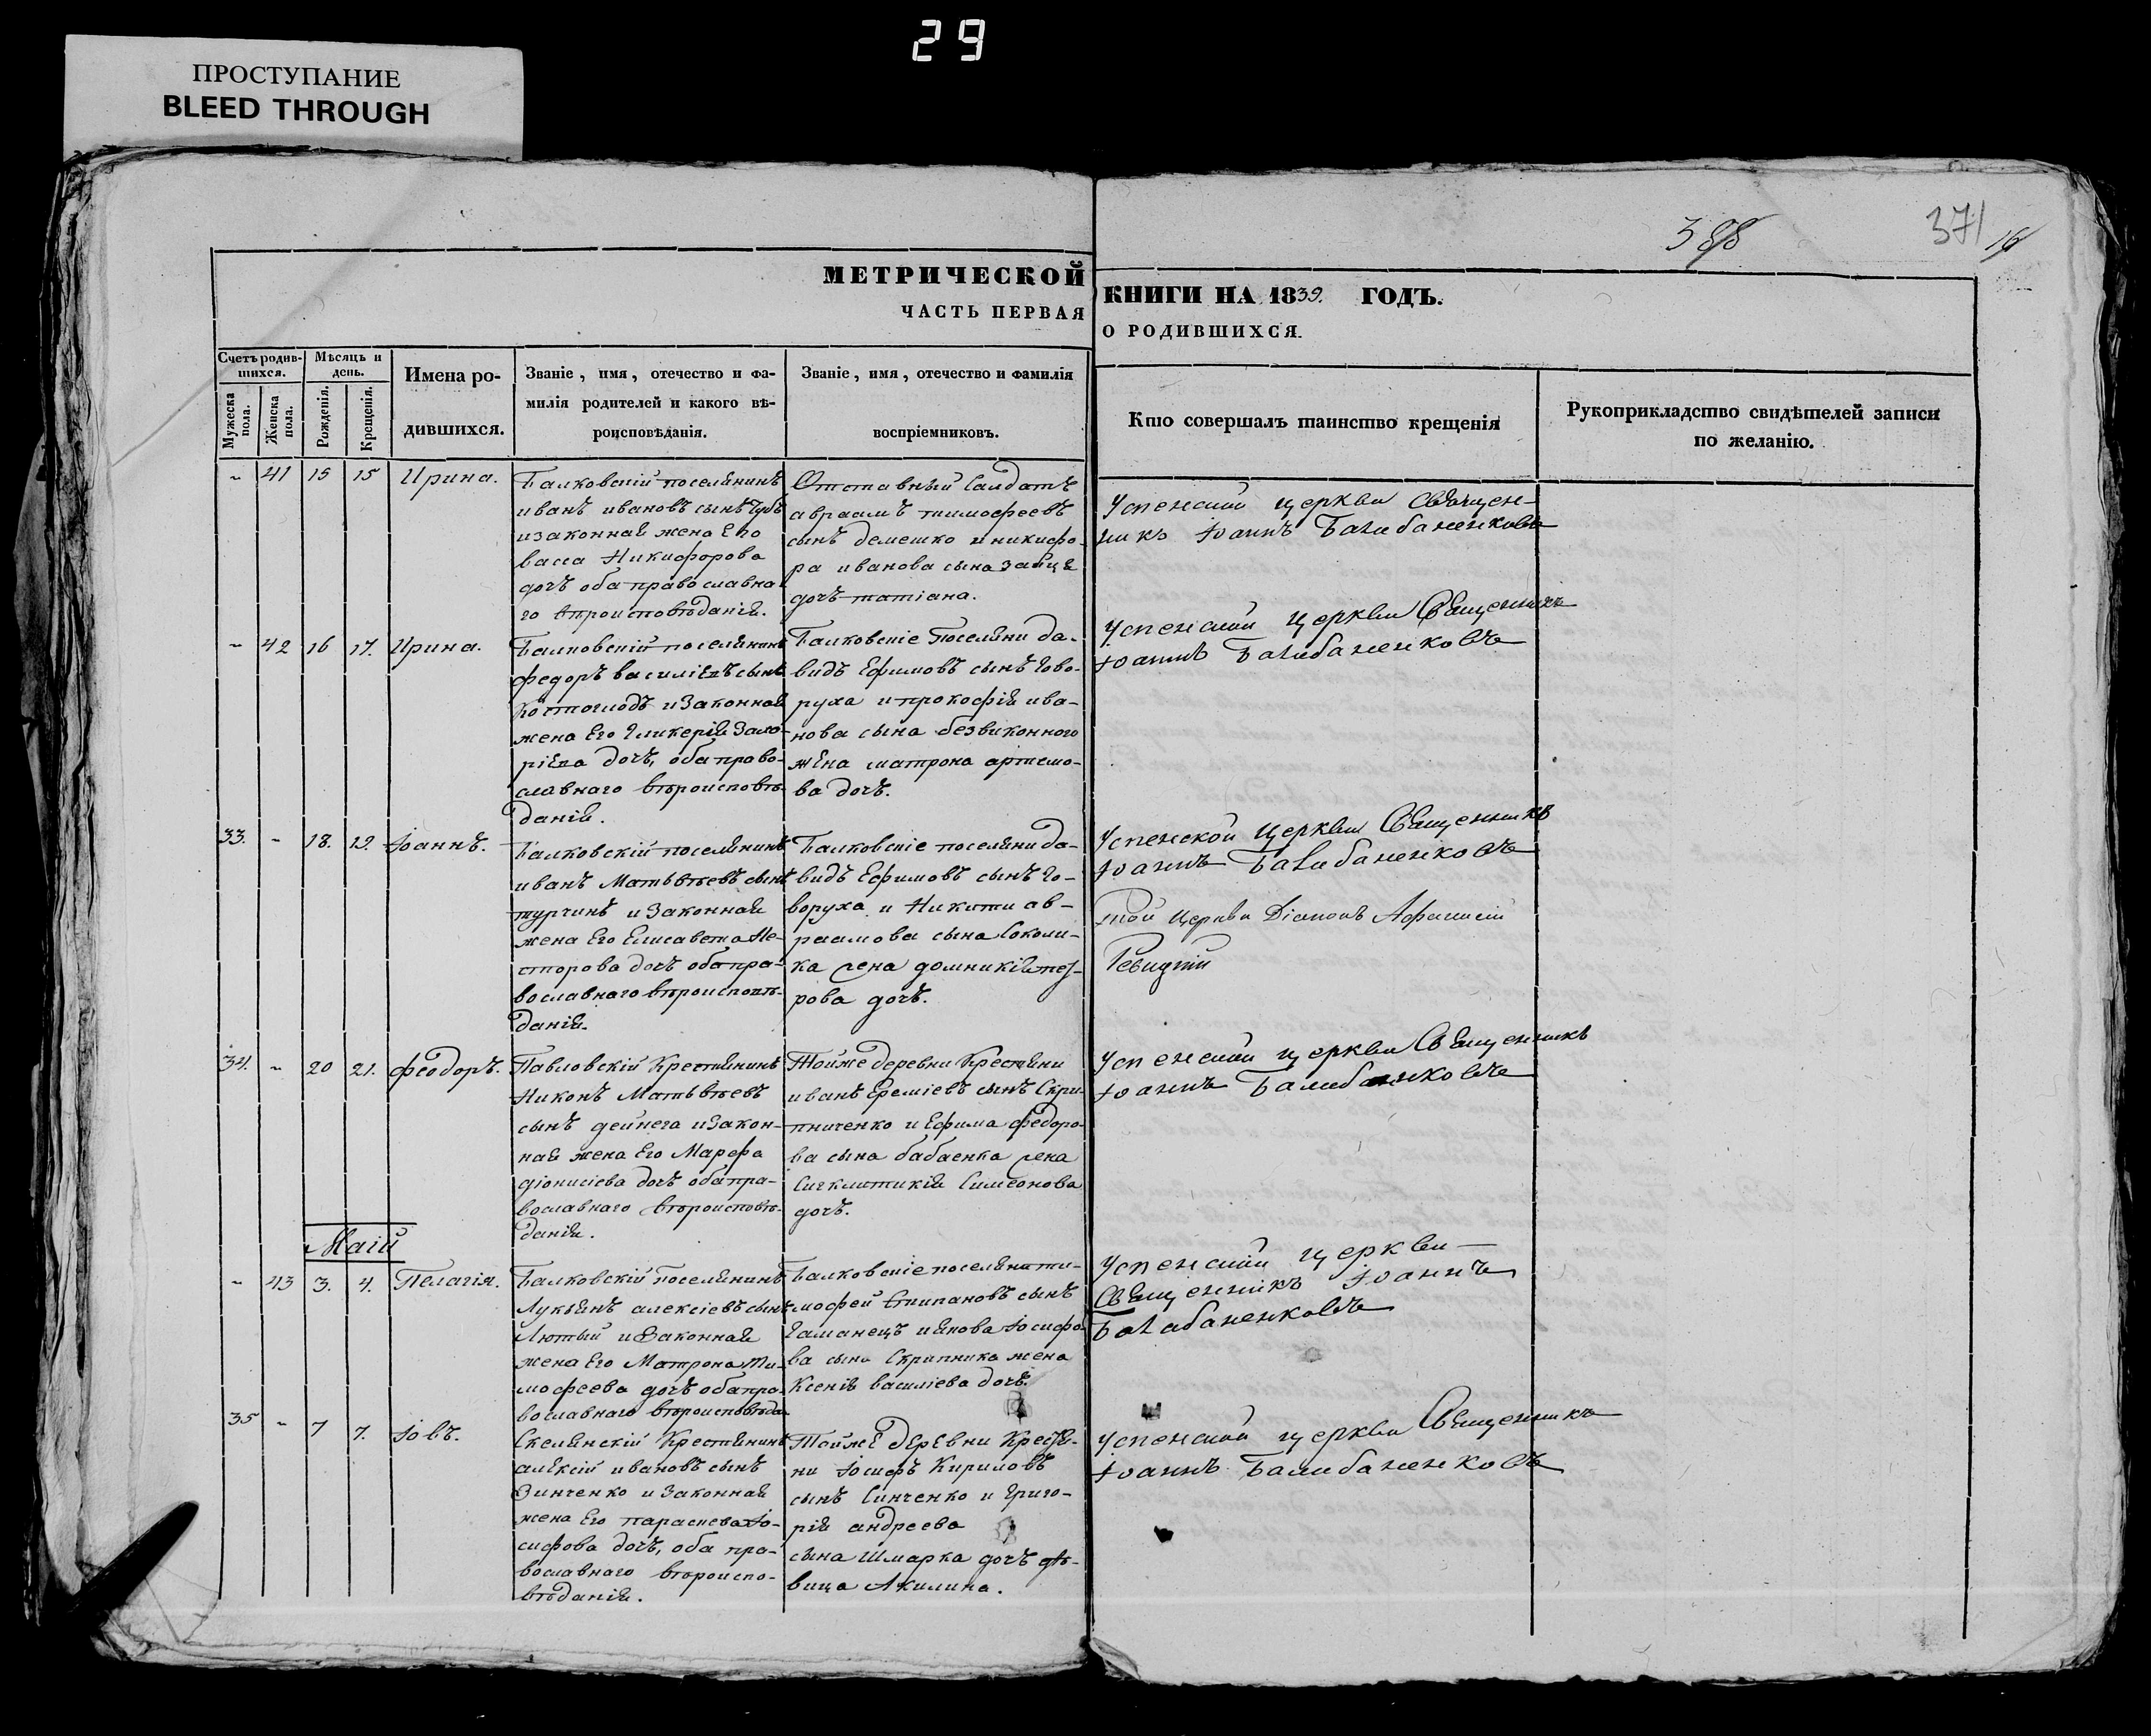 29
ПРОСТУПАНИЕ
BLEED THROUGH
388
371
16
МЕТРИЧЕСКОЙ КНИГИ НА 1839. ГОДЪ.
ЧАСТЬ ПЕРВАЯ О РОДИВШИХСЯ.
Счетъ родив-
шихся.
Мужеска пола.
Женска пола.
Мѣсяцъ и
день.
Рожденія.
Крещенія.
Имена ро-
дившихся.
Званіе, имя, отечество и фа-
милія родителей и какого вѣ-
роисповѣданія.
Званіе, имя, отечество и фамилія
воспріемниковъ.
Кто совершалъ таинство крещенія
Рукоприкладство свидѣтелей записи
по желанію.
- 41 15 15 Ирина.
Балковскій поселянинъ
иванъ ивановъ сынъ
изаконная жена Его
васса Никифорова
дочъ оба православна
го вѣроисповѣданія.
Отставный Салдатъ
авраамъ тимофеевъ
сынъ демешко и никифо-
ра иванова сына зайця
дочъ татіана.
Успенской церкви Священ-
никъ Іоаннъ Балабаненковъ
- 42 16 17. Ирина.
Балковскій поселянинъ
федоръ василіевъ сынъ
Костоглодъ и Законная
жена Его Гликерія Заха-
ріева дочъ, оба право-
славнаго вѣроисповѣ-
данія.
Балковскіе Поселяни да-
видъ Ефимовъ сынъ Гово-
руха и прокофія ива-
нова сына безвиконного
жена матрона артемо-
ва дочъ.
Успенской церкви Священникъ
Іоаннъ Балабаненковъ
33. - 18. 19. Іоаннъ.
Балковскій поселянинъ
иванъ Матвѣевъ сынъ
турчинъ и Законная
жена Его Елисавета Не-
сторова дочъ оба пра-
вославнаго вѣроисповѣ-
данія.
Балковскіе поселяни да-
видъ Ефимовъ сынъ Го-
воруха и Никити ав-
раамова сына Соколи-
ка жена домникія пет-
рова дочъ.
Успенской церкви Священникъ
Іоаннъ Балабаненковъ
той Церкви Діаконъ Афанасій
Ревицкій
34. - 20 21. феодоръ.
Павловскій Крестянинъ
Никонъ Матвѣевъ
сынъ дейнега и Закон-
ная жена Его Марфа
діонисіева дочъ оба пра-
вославнаго вѣроисповѣ-
данія.
Тойже деревни Крестяни
иванъ Еремѣевъ сынъ Скри-
пниченко и Ефима федоро-
ва сына бабаенка жена
Сигклитикія Симеонова
дочъ.
Успенской церкви Священникъ
Іоаннъ Балабаненковъ
Маій
- 43 3. 4. Пелагія.
Балковскій поселянинъ
Лукъянъ алексіевъ сынъ
Лютый и Законная
жена Его Матрона Ти-
мофеева дочъ оба пра-
вославнаго вѣроисповѣда
Балковскіе поселяни ти-
мофей Стипановъ сынъ
Гаманецъ и якова Іосифо-
ва сына Скрипника жена
Ксенія василіева дочъ.
Успенской церкви
Священникъ Іоаннъ
Балабаненковъ
35 - 7 7. Іовъ.
Скелянскій Крестянинъ
алексій ивановъ сынъ
Зинченко и Законная
жена Его параскева Іо-
сифова дочъ, оба пра-
вославнаго вѣроиспо-
вѣданія.
Тойже деревни Крестя-
ни Іосифъ Кириловъ
сынъ Синченко и Григо-
рія андреева
сына Шмарка дочъ дѣ-
вица Акилина.
Успенской церкви Священникъ
Іоаннъ Балабаненковъ